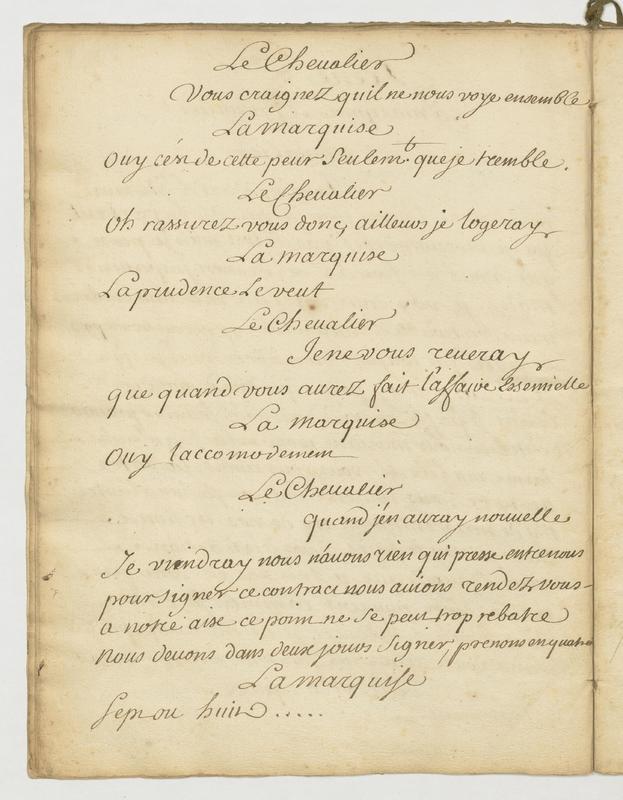 Le Cheualier
Vous craignez quil ne nous voye ensemble
La marquise
Ouy cén de cette peur Seulemt. que je tremble.
Le Cheualier
Oh rassurez vous donc, ailleurs je logeray
La marquise
La prudence Le veut
Le Cheualier
Je ne vous reveray
que quand vous aurez fait l'affaire Essentielle
La marquise
Ouy laccomodement
Le Cheualier
quand j'én auray nouvelle
Je viendray nous n'auons rien qui presse entre nous
pour Signer ce contract nous auions rendez vous
a notre aise ce point ne Se peut trop rebatre
Nous deuons dans deux jours Signer, prenons en quatre
La marquise
Sept ou huit.....